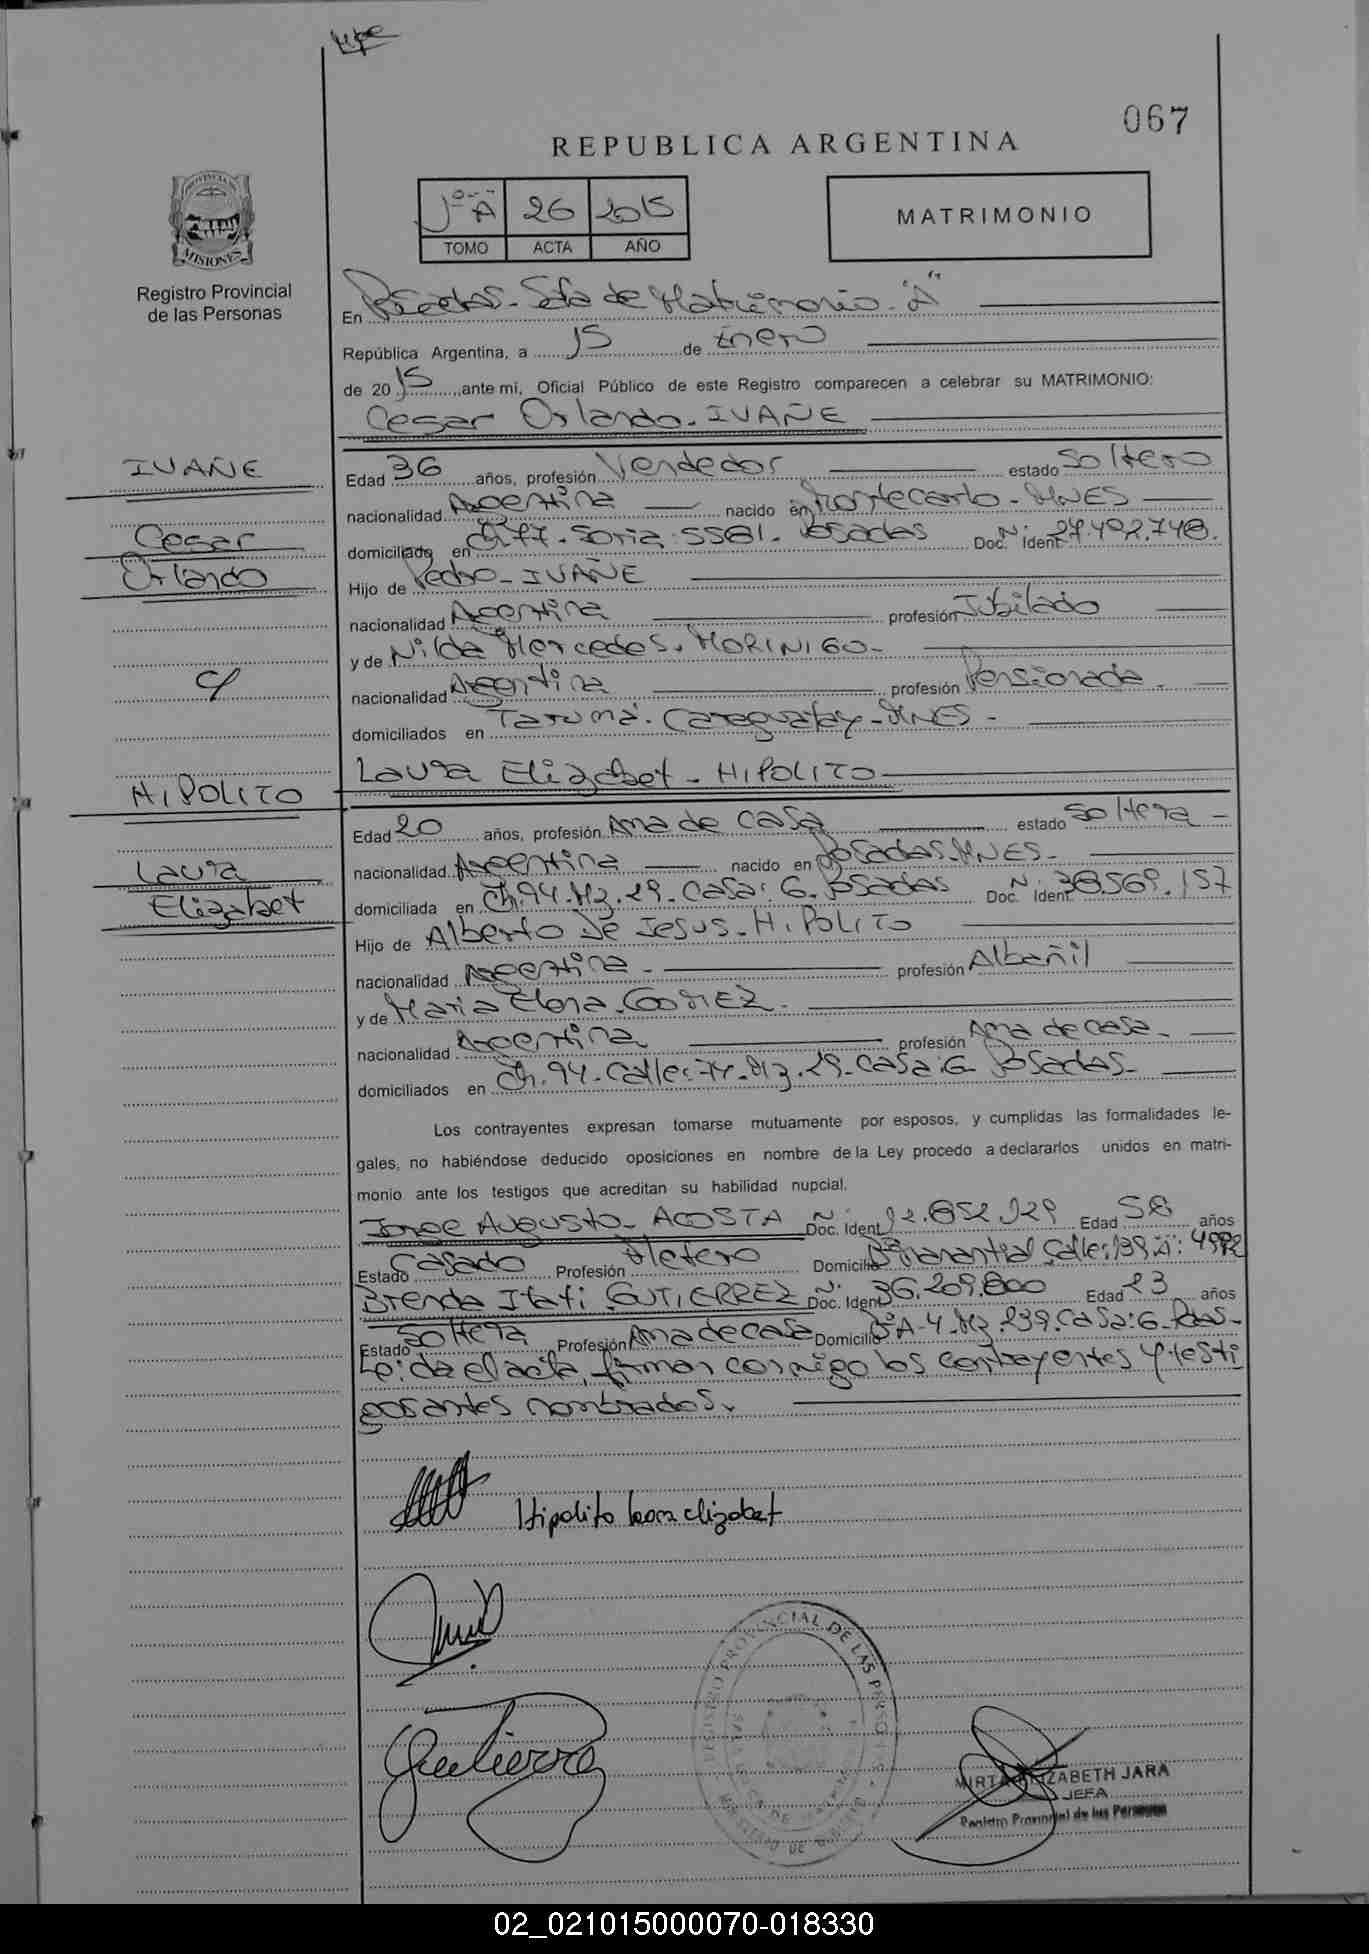 067
REPUBLICA ARGENTINA
1º "A" 26 2015
TOMO ACTA AÑO
MATRIMONIO
PROVINCIA DE
MISIONES
Registro Provincial
de las Personas
En Posadas- Sala de Matrimonio- "A"
República Argentina, a 15 de Enero
de 2015, ante mi, Oficial Público de este Registro comparecen a celebrar su MATRIMONIO:
Cesar Orlando- IVAÑE
IVAÑE
Cesar
Orlando
c/
HIPOLITO
Laura
Elizabet
Edad 36 años, profesión Vendedor estado Soltero
nacionalidad Argentina nacido en Montecarlo- MNES
domiciliado en Soria: 5581- Posadas Doc. Ident Nº 27.492.748.
Hijo de Pedro- IVAÑE
nacionalidad Argentina profesión Jubilado
y de Nilda Mercedes- MORINIGO-
nacionalidad Argentina profesión Pensionada-
domiciliados en Tarumá- Caraguatay- MNES-
Laura Elizabet- HIPOLITO
Edad 20 años, profesión Ama de casa estado Soltera-
nacionalidad Argentina nacido en Posadas- MNES-
domiciliada en Ch. 94- Mz. 29- Casa: 6- Posadas Doc. Ident Nº 38.569.157
Hijo de Alberto De Jesus- HIPOLITO
nacionalidad Argentina- profesión Albañil
y de Maria Elena- GOMEZ-
nacionalidad Argentina profesión Ama de casa-
domiciliados en Ch. 94- Calle: 74- Mz. 29- Casa: 6- Posadas-
Los contrayentes expresan tomarse mutuamente por esposos, y cumplidas las formalidades le-
gales, no habiéndose deducido oposiciones en nombre de la Ley procedo a declararlos unidos en matri-
monio ante los testigos que acreditan su habilidad nupcial.
Jorge Augusto- ACOSTA Doc. Ident Nº 12.852.929 Edad 58 años
Estado Casado Profesión Fletero Domicilio Bº Manantial Calle: 139 Nº: 4992
Brenda Itati- GUTIERREZ Doc. Ident Nº 36.209.800 Edad 23 años
Estado Soltera Profesión Ama de casa Domicilio Bº A-4- Mz. 239- Casa: 6- Pdas-
Leida el acta, firman conmigo los contrayentes y testi
gos antes nombrados.
Hipolito Laura Elizabet
Gutierrez
REGISTRO PROVINCIAL DE LAS PERSONAS
MIRTA ELIZABETH JARA
JEFA
Registro Provincial de las Personas
02_021015000070-018330